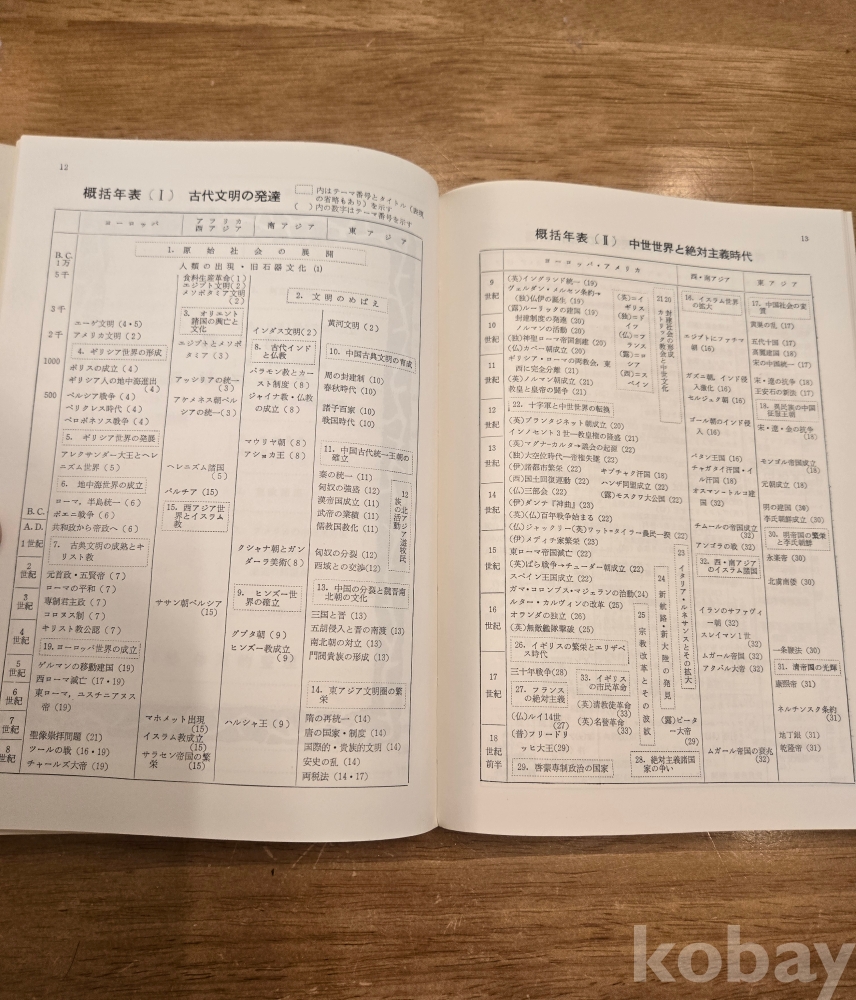 12
概括年表（Ⅰ） 古代文明の発達
内はテーマ番号とタイトル
の省略もあり）を示す
（ ）内の数字はテーマ番号を示す
ヨーロッパ
アフリカ
西アジア
南アジア
東アジア
B.C.
1万
5千
3千
2千
1000
500
B.C.
A.D.
1世紀
2
世紀
3
世紀
4
世紀
5
世紀
6
世紀
7
世紀
8
世紀
1. 原始社会の展開
人類の出現・旧石器文化 (1)
食料生産革命(1)
エジプト文明(2)
メソポタミア文明
(2)
2. 文明のめばえ
エーゲ文明(4・5)
アメリカ文明(2)
4. ギリシア世界の形成
ポリスの成立(4)
ギリシア人の地中海進出
(4)
ペルシア戦争(4)
ペリクレス時代(4)
ペロポネソス戦争(4)
5. ギリシア世界の発展
アレクサンダー大王とヘレ
ニズム世界(5)
6. 地中海世界の成立
ローマ，半島統一(6)
ポエニ戦争(6)
共和政から帝政へ(6)
7. 古典文明の成熟とキ
リスト教
元首政・五賢帝(7)
ローマの平和(7)
専制君主政(7)
コロヌス制(7)
キリスト教公認(7)
19. ヨーロッパ世界の成立
ゲルマンの移動建国(19)
西ローマ滅亡(17・19)
東ローマ，ユスチニアヌス
帝(19)
聖像崇拝問題(21)
ツールの戦(16・19)
チャールズ大帝(19)
3. オリエント
諸国の興亡と
文化
エジプトとメソポ
タミア(3)
アッシリアの統一
(3)
アケメネス朝ペル
シアの統一(3)
ヘレニズム諸国
(5)
パルチア(15)
15. 西アジア世
界とイスラム
教
ササン朝ペルシア
(15)
マホメット出現
(15)
イスラム教成立
(15)
サラセン帝国の繁
栄(15)
インダス文明(2)
8. 古代インド
と仏教
バラモン教とカー
スト制度(8)
ジャイナ教・仏教
の成立(8)
マウリヤ朝(8)
アショカ王(8)
クシャナ朝とガン
ダーラ美術(8)
9. ヒンズー世
界の確立
グプタ朝(9)
ヒンズー教成立
(9)
ハルシャ王(9)
黄河文明(2)
10. 中国古典文明の育成
周の封建制(10)
春秋時代(10)
諸子百家(10)
戦国時代(10)
11. 中国古代統一王朝の
確立
秦の統一(11)
匈奴の強盛(12)
漢帝国成立(11)
武帝の業績(11)
儒教国教化(11)
12 北アジア遊牧民族の活動
匈奴の分裂(12)
西域との交渉(12)
13. 中国の分裂と魏晋南
北朝の文化
三国と晋(13)
五胡侵入と晋の南渡(13)
南北朝の対立(13)
門閥貴族の形成(13)
14. 東アジア文明圏の繁
栄
隋の再統一(14)
唐の国家・制度(14)
国際的・貴族的文明(14)
安史の乱(14)
両税法(14・17)
13
概括年表（Ⅱ） 中世世界と絶対主義時代
ヨーロッパ・アメリカ
西・南アジア
東アジア
9
世紀
10
世紀
11
世紀
12
世紀
13
世紀
14
世紀
15
世紀
16
世紀
17
世紀
18
世紀
前半
(英)イングランド統一(19)
ヴェルダン・メルセン条約→
(独)仏伊の誕生(19)
(露)ルーリックの建国(19)
封建制度の発達(20)
ノルマンの活動(20)
(独)神聖ローマ帝国創建(20)
(仏)カペー朝成立(20)
ギリシア・ローマの両教会，東
西に完全分離(21)
(英)ノルマン朝成立(21)
教皇と皇帝の闘争(21)
(英)＝イ
ギリス
(独)＝ド
イツ
(仏)＝フ
ランス
(露)＝ロ
シア
(西)＝ス
ペイン
21 カトリック教会と中世文化
20 封建社会の形成
22. 十字軍と中世世界の転換
(英)プランタジネット朝成立(20)
インノセント3世─教皇権の隆盛(21)
(英)マグナ-カルタ→議会の起源(22)
(独)大空位時代─帝権失墜(22)
(伊)諸都市繁栄(22)
キプチャク汗国(18)
(西)国土回復運動(22)
ハンザ同盟成立(22)
(仏)三部会(22)
(露)モスクワ大公国(22)
(伊)ダンテ『神曲』(23)
(英)(仏)百年戦争始まる(22)
(仏)ジャックリー(英)ワット-タイラー農民一揆(22)
(伊)メディチ家繁栄(23)
東ローマ帝国滅亡(22)
(英)ばら戦争→チューダー朝成立(22)
スペイン王国成立(22)
ガマ・コロンブス・マジェランの活動(24)
ルター・カルヴィンの改革(25)
オランダの独立(26)
(英)無敵艦隊撃破(25)
23 イタリア・ルネサンスとその拡大
24 新航路・新大陸の発見
25 宗教改革とその波紋
26. イギリスの繁栄とエリザベ
ス時代
三十年戦争(28)
27. フランス
の絶対主義
33. イギリス
の市民革命
(英)清教徒革命
(33)
(仏)ルイ14世
(27)
(英)名誉革命
(33)
(露)ピータ
ー大帝
(29)
(普)フリードリ
ッヒ大王(29)
29. 啓蒙専制政治の国家
28. 絶対主義諸国
家の争い
16. イスラム世界
の拡大
エジプトにファチマ
朝(16)
ガズニ朝，インド侵
入激化(16)
セルジュク朝(16)
ゴール朝のインド侵
入(16)
パタン王国(16)
チャガタイ汗国・イ
ル汗国(18)
オスマン-トルコ建
国(32)
チムールの帝国成立
(32)
アンゴラの戦(32)
32. 西・南アジア
のイスラム諸国
イランのサファヴィ
ー朝(32)
スレイマン1世
(32)
ムガール帝国(32)
アクバル大帝(32)
ムガール帝国の衰兆
(32)
17. 中国社会の変
質
黄巣の乱(17)
五代十国(17)
高麗建国(18)
宋の中国統一(17)
宋・遼の抗争(18)
王安石の新法(17)
18. 異民族の中国
征服王朝
宋・遼・金の抗争
(18)
モンゴル帝国成立
(18)
元朝成立(18)
明の建国(30)
李氏朝鮮成立(30)
30. 明帝国の繁栄
と李氏朝鮮
永楽帝(30)
北虜南倭(30)
一条鞭法(30)
31. 清帝国の光輝
康熙帝(31)
ネルチンスク条約
(31)
地丁銀(31)
乾隆帝(31)
kobay